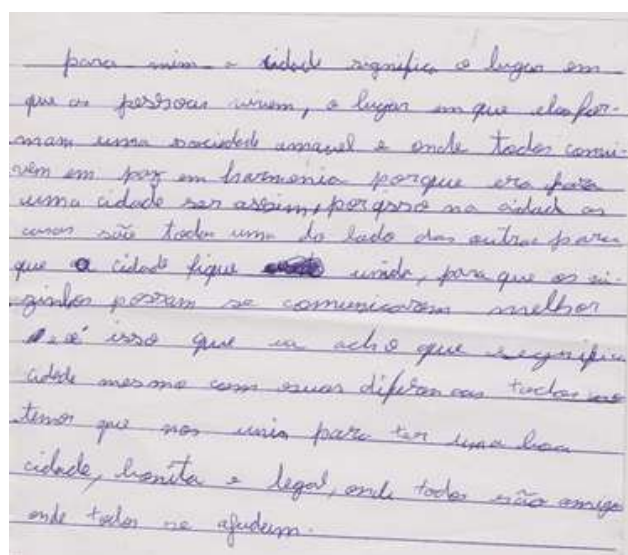 para mim a cidade significa o lugar em
que as pessoas vivem, o lugar em que elas for-
mam uma sociedade amavel e onde todos convi-
vem em paz em harmonia porque era para
uma cidade ser assim, por isso na cidade as
casas são todas uma do lado das outras para
que a cidade fique unida, para que os vi-
zinhos possam se comunicarem melhor
e é isso que eu acho que significa
cidade mesmo com suas diferenças todos
temos que nos unir para ter uma boa
cidade, bonita e legal, onde todos são amigo
onde todos se ajudam.